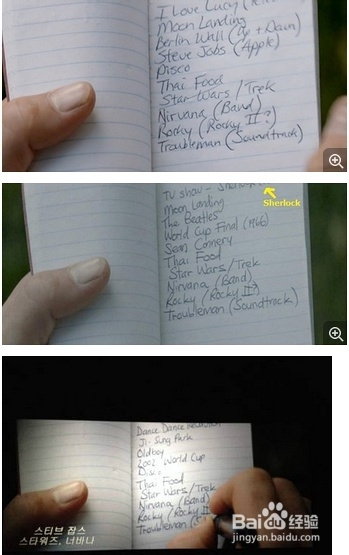 I Love Lucy
Moon Landing
Berlin Wall (Up + Down)
Steve Jobs (Apple)
Disco
Thai Food
Star Wars / Trek
Nirvana (Band)
Rocky (Rocky II?)
Troubleman (Soundtrack)
TV show -
Sherlock
Moon Landing
The Beatles
World Cup Final (1966)
Sean Connery
Thai Food
Star Wars/Trek
Nirvana (Band)
Rocky (Rocky II?)
Troubleman (Soundtrack)
Dance Dance Revolution
Ji-Sung Park
Oldboy
2002 World Cup
Disco
Thai Food
Star Wars/Trek
Nirvana (Band)
Rocky (Rocky II?)
Troubleman
스티브 잡스
스타워즈, 너바나
Baidu 经验
jingyan.baidu.com